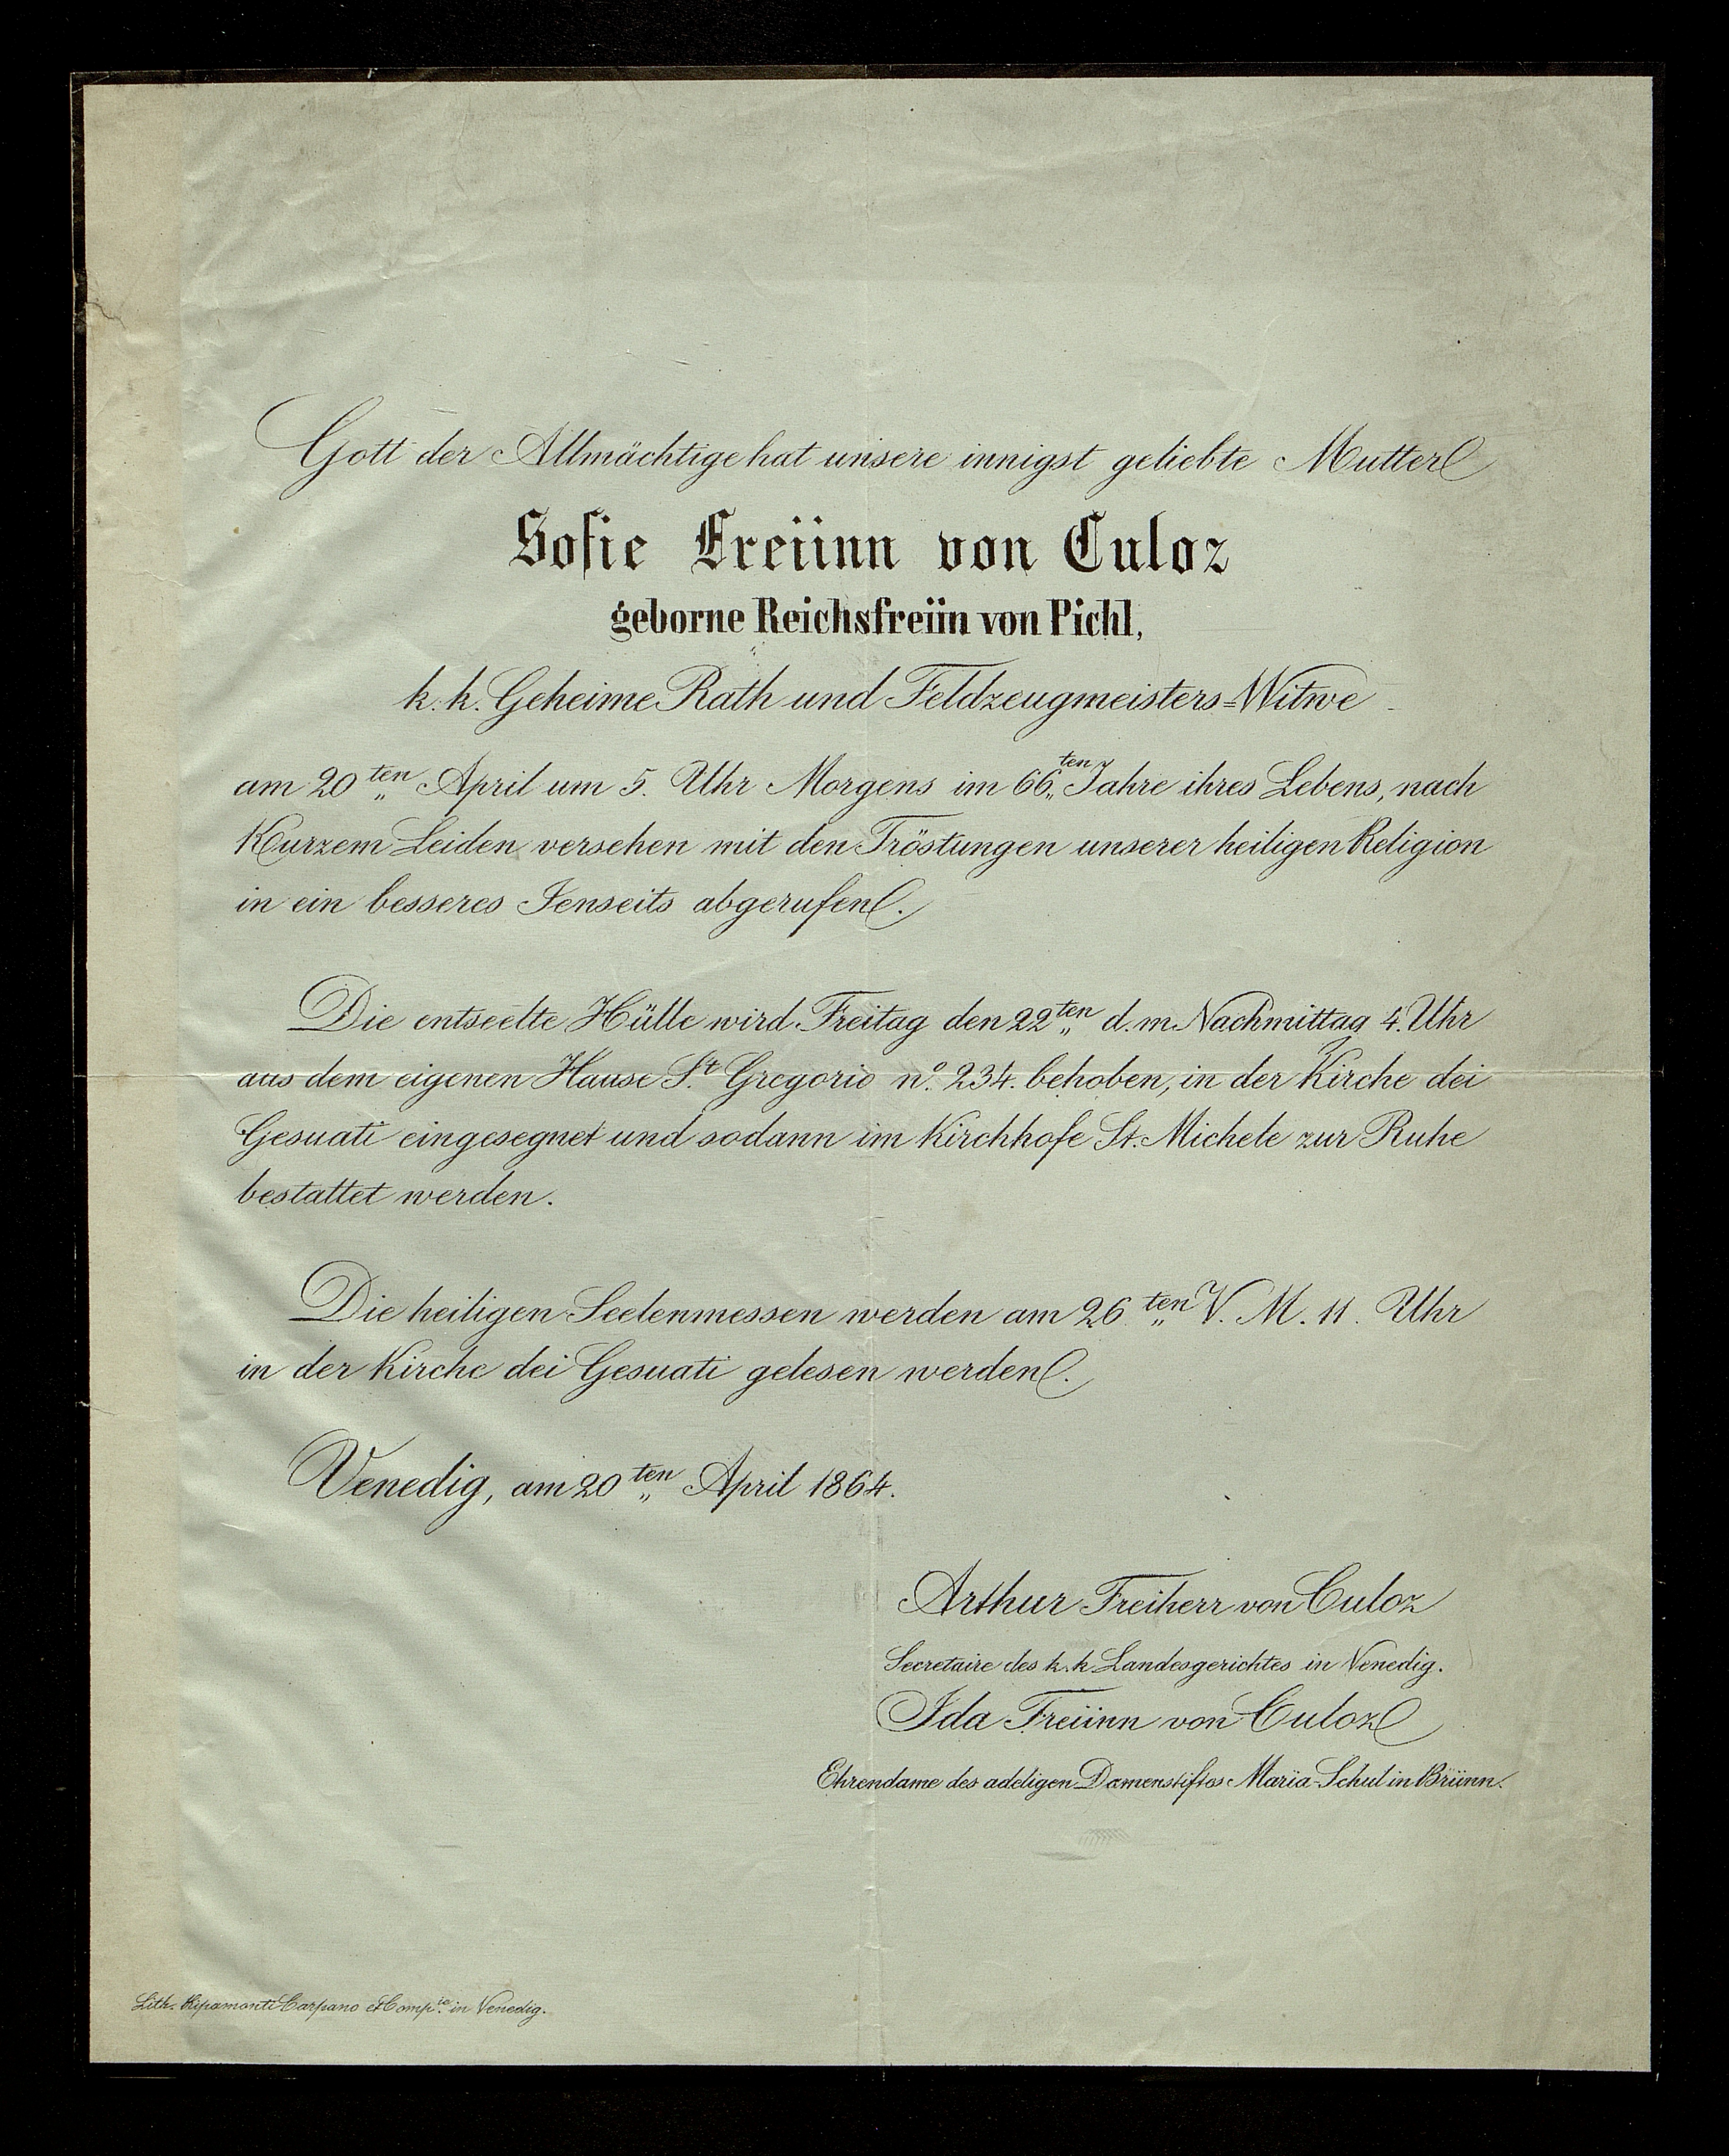 Gott der Allmächtige hat unsere innigst geliebte Mutter
Sofie Freiinn von Culoz
geborne Reichsfreiin von Pichl,
k. k. Geheime Rath und Feldzeugmeisters=Witwe
am 20ten April um 5. Uhr Morgens im 66ten Jahre ihres Lebens, nach
Kurzem Leiden versehen mit den Tröstungen unserer heiligen Religion
in ein besseres Jenseits abgerufen.
Die entseelte Hülle wird Freitag den 22ten d. m. Nachmittag 4. Uhr
aus dem eigenen Hause St. Gregorio no. 234. behoben, in der Kirche dei
Gesuati eingesegnet und sodann im Kirchhofe St. Michele zur Ruhe
bestattet werden.
Die heiligen Seelenmessen werden am 26ten V. M. 11. Uhr
in der Kirche dei Gesuati gelesen werden.
Venedig, am 20ten April 1864.
Arthur Freiherr von Culoz
Secretaire des k. k. Landesgerichtes in Venedig.
Ida Freiinn von Culoz
Ehrendame des adeligen Damenstiftes Maria-Schul in Brünn.
Lith. Ripamonti Carpano et Compie. in Venedig.